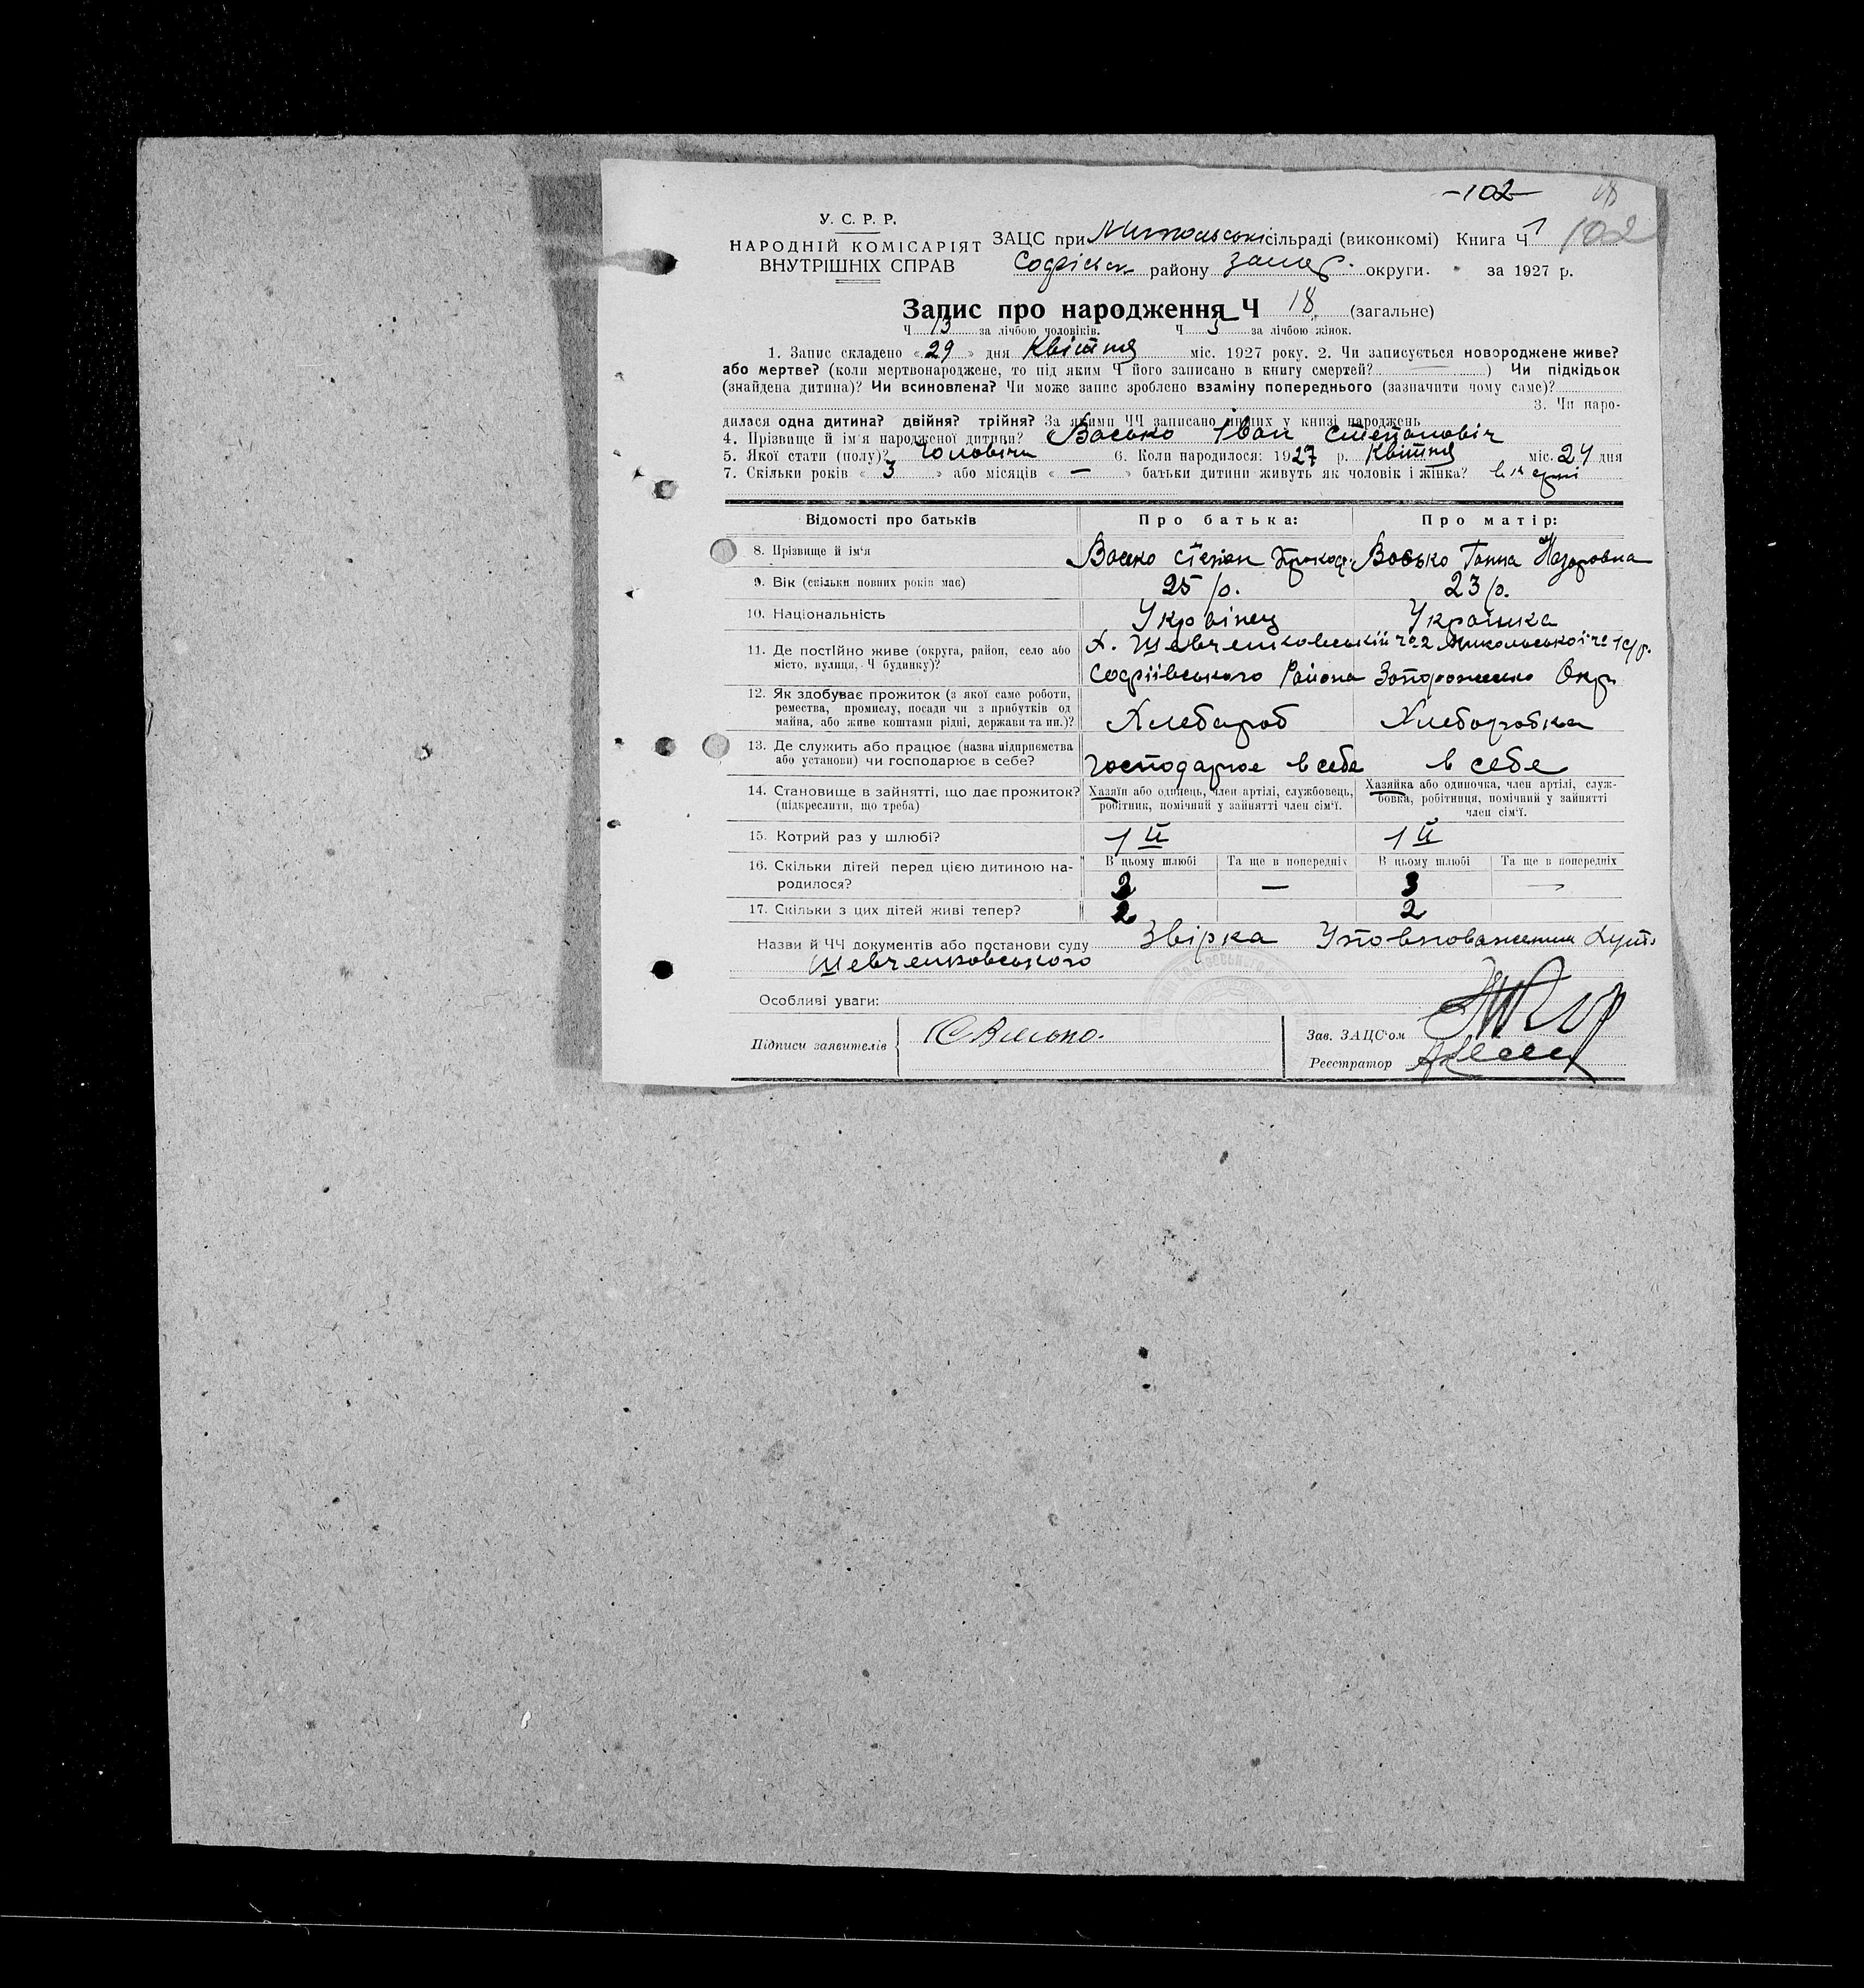 -102-
102
У. С. Р. Р.
НАРОДНІЙ КОМІСАРІЯТ
ВНУТРІШНІХ СПРАВ
ЗАЦС при сільраді (виконкомі) Книга Ч 1
району округи. за 1927 р.
Запис про народження Ч 18 (загальне)
Ч 13 за лічбою чоловіків. Ч 5 за лічбою жінок.
1. Запис складено « 29 » дня Квітня міс. 1927 року. 2. Чи записується новороджене живе?
або мертве? (коли мертвонароджене, то під яким Ч його записано в книгу смертей? — ) Чи підкідьок
(знайдена дитина)? Чи всиновлена? Чи може запис зроблено взаміну попереднього (зазначити чому саме)?
3. Чи наро-
дилася одна дитина? двійня? трійня? За якими ЧЧ записано інших у книзі народжень
4. Прізвище й ім'я народженої дитини? Васько Іван Степановіч
5. Якої стати (полу)? 6. Коли народилося: 1927 р. Квітня міс. 24 дня
7. Скільки років « 3 » або місяців « — » батьки дитини живуть як чоловік і жінка?
Відомості про батьків Про батька: Про матір:
8. Прізвище й ім'я Васько Степан Прокоф. Васько Ганна Назаровна
9. Вік (скільки повних років має) 25 р. 23 р.
10. Національність Українец Українка
11. Де постійно живе (округа, район, село або
місто, вулиця, Ч будинку)?
Х. Шевченковській № 2
Софіївського Района Запорожсько Окр
12. Як здобуває прожиток (з якої саме роботи,
ремества, промислу, посади чи з прибутків од
майна, або живе коштами рідні, держави та ин.)?
Хлебароб Хлеборобка
13. Де служить або працює (назва підприємства
або установи) чи господарює в себе?
господарює в себе в себе
14. Становище в зайнятті, що дає прожиток?
(підкреслити, що треба)
Хазяїн або одинець, член артілі, службовець,
робітник, помічний у зайнятті член сім'ї.
Хазяйка або одиночка, член артілі, служ-
бовка, робітниця, помічний у зайнятті
член сім'ї.
15. Котрий раз у шлюбі? 1й 1й
16. Скільки дітей перед цією дитиною на-
родилося?
В цьому шлюбі Та ще в попередніх В цьому шлюбі Та ще в попередніх
— 3 —
17. Скільки з цих дітей живі тепер? 2 2
Назви й ЧЧ документів або постанови суду Звірка Уповноваженим
Шевченковського
Особливі уваги:
Підписи заявителів С Васько.
Зав. ЗАЦС'ом
Реєстратор